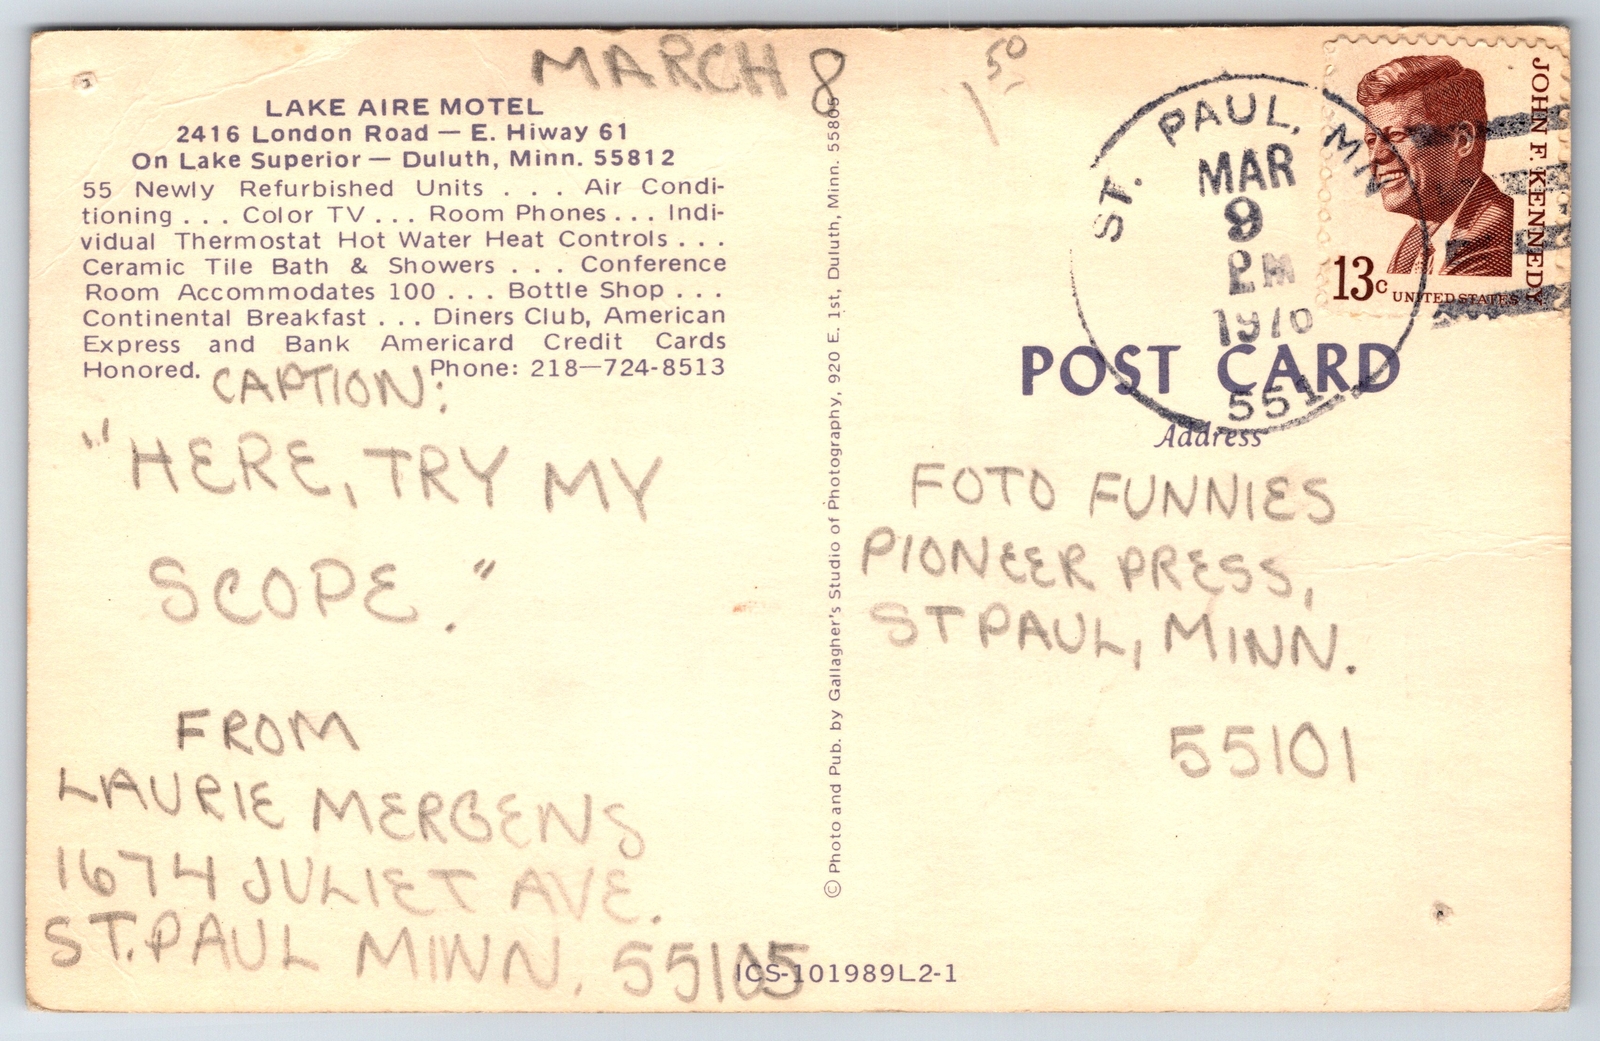 MARCH 8
1 50
LAKE AIRE MOTEL
2416 London Road — E. Hiway 61
On Lake Superior — Duluth, Minn. 55812
55 Newly Refurbished Units . . . Air Condi-
tioning . . . Color TV . . . Room Phones . . . Indi-
vidual Thermostat Hot Water Heat Controls . . .
Ceramic Tile Bath & Showers . . . Conference
Room Accommodates 100 . . . Bottle Shop . . .
Continental Breakfast . . . Diners Club, American
Express and Bank Americard Credit Cards
Honored. Phone: 218—724-8513
CAPTION:
"HERE, TRY MY
SCOPE."
FROM
LAURIE MERGENS
1674 JULIET AVE.
ST. PAUL MINN. 55105
ICS-101989L2-1
© Photo and Pub. by Gallagher's Studio of Photography, 920 E. 1st, Duluth, Minn. 55805
ST. PAUL, MN
MAR
9
PM
1970
551
JOHN F. KENNEDY
13c UNITED STATES
POST CARD
Address
FOTO FUNNIES
PIONEER PRESS,
ST PAUL, MINN.
55101